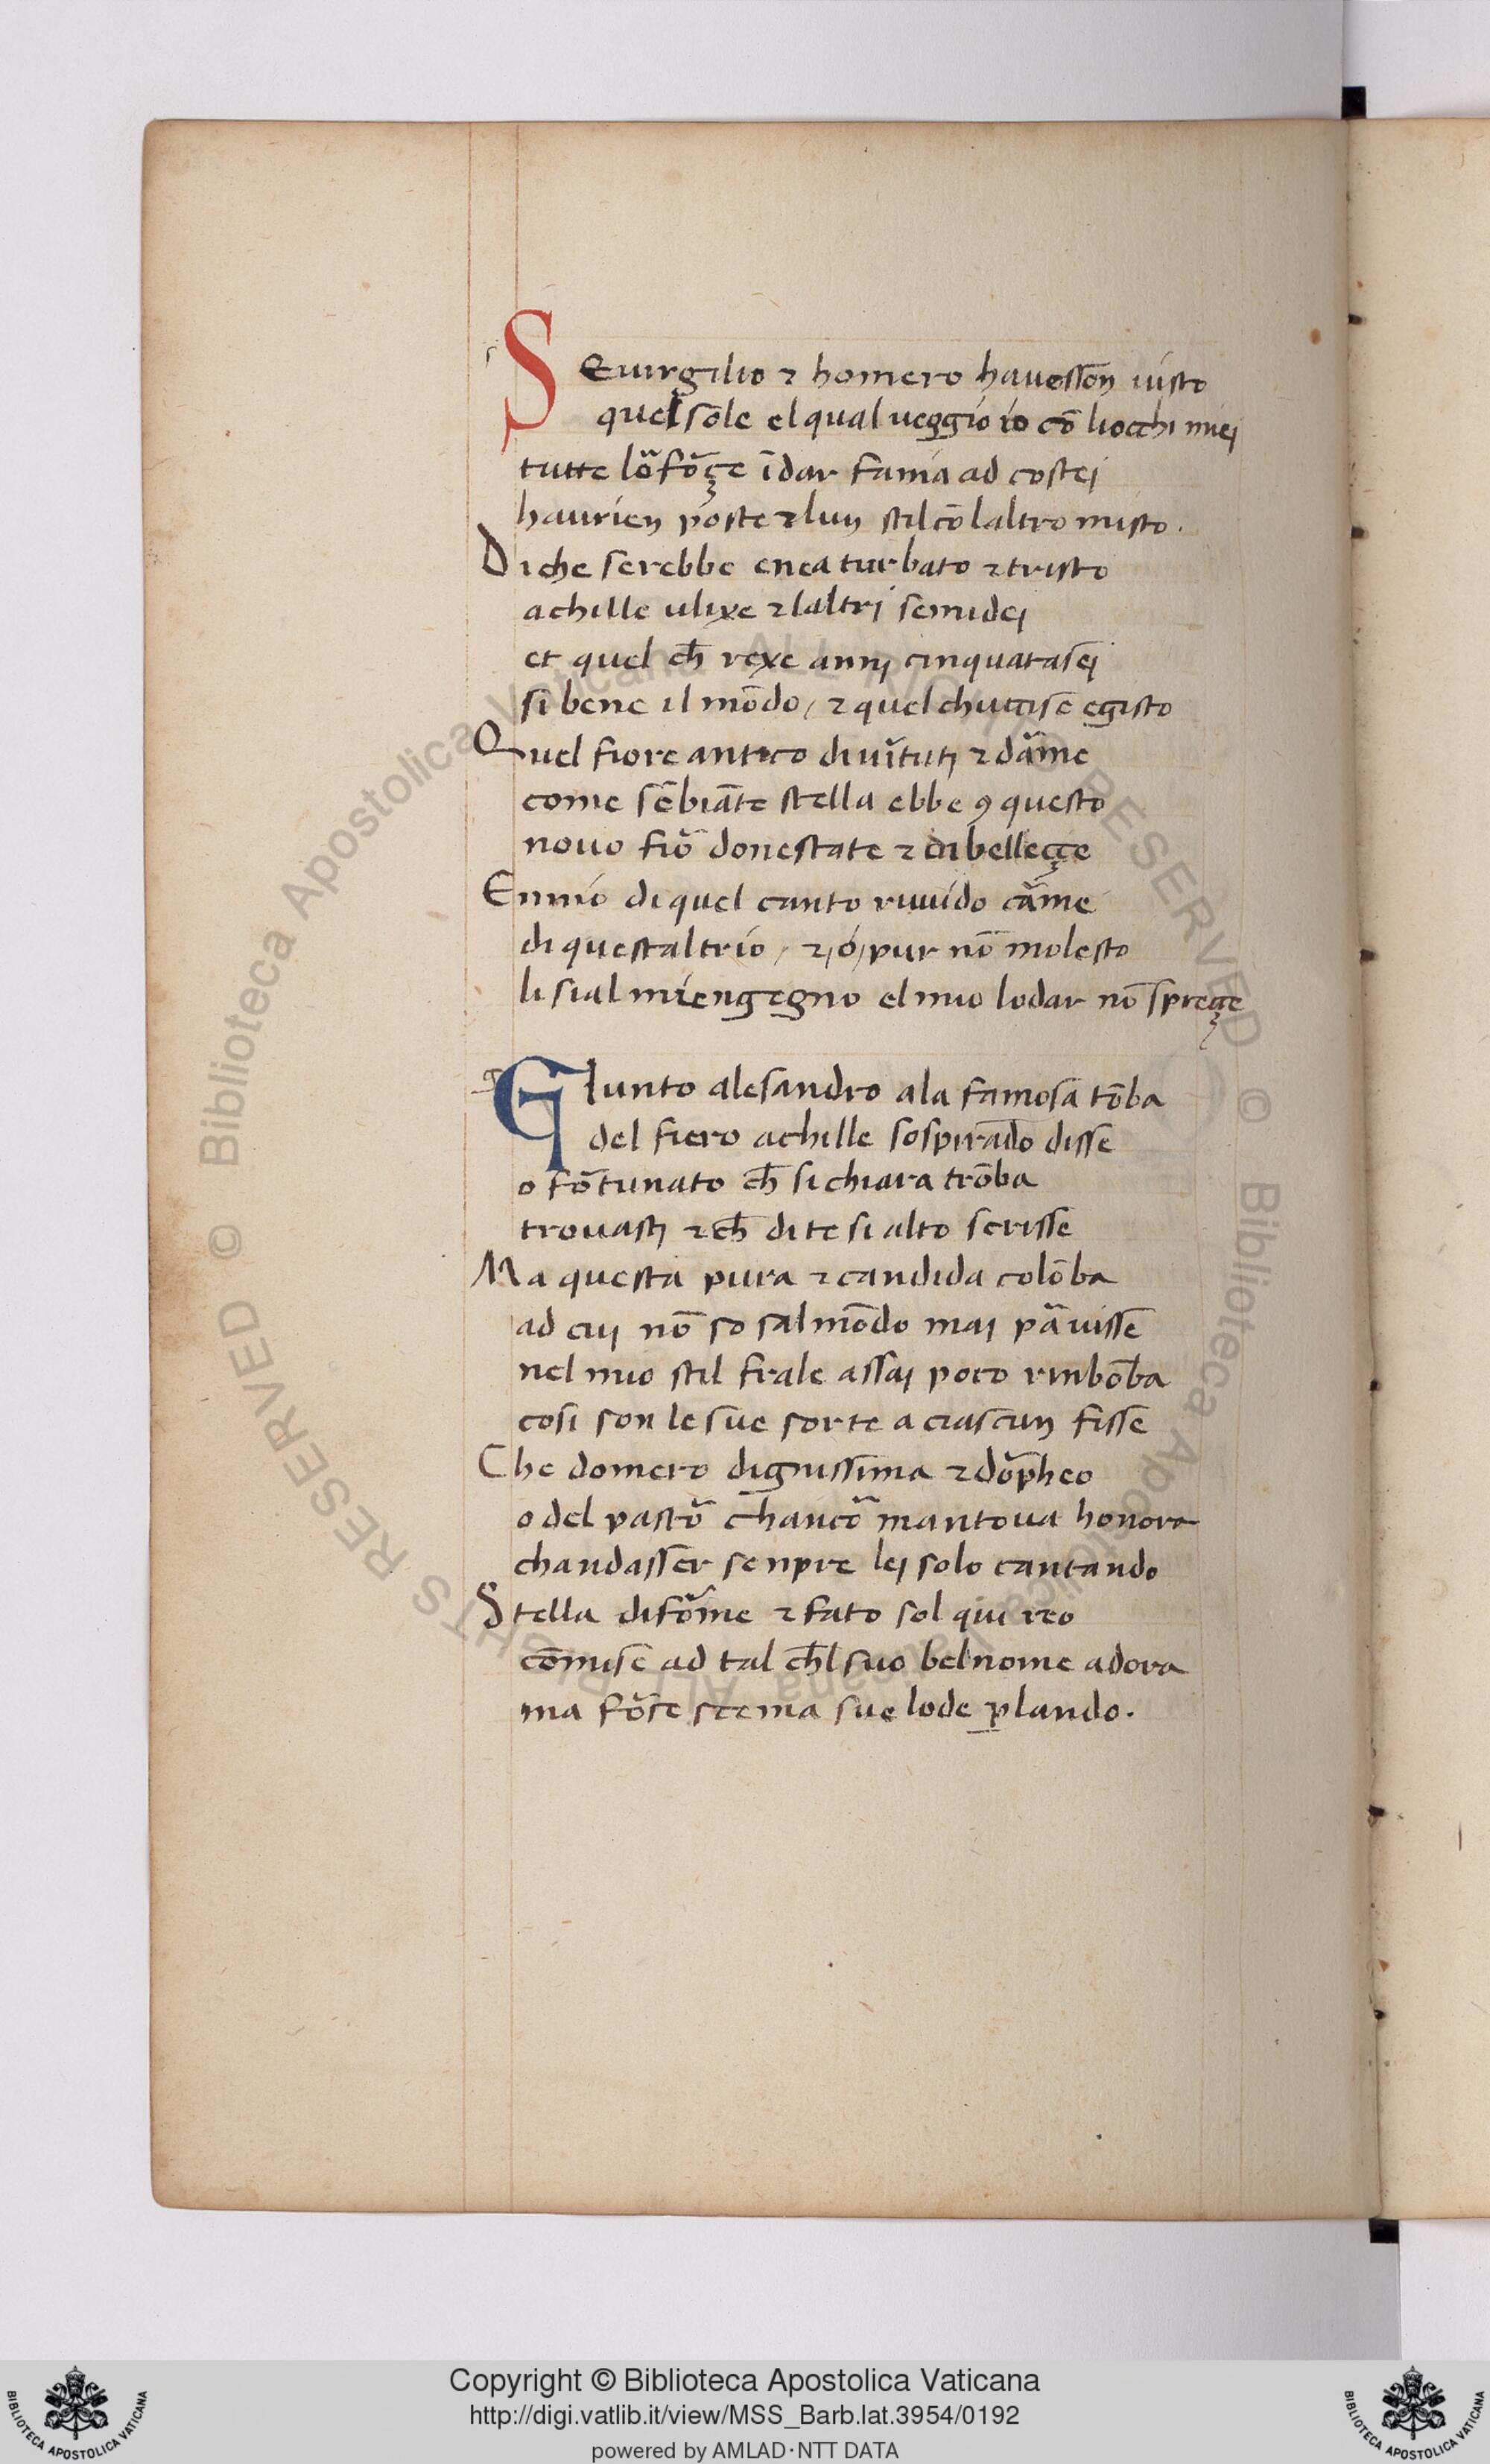 SEuirgilio ⁊ homero hauessoñ uisto
quel sole el qual ueggio io cō liocchi miei
tutte loᷓ foᷓçe ī dar fama ad costei
haurien poste ⁊ lun stil cō laltro misto.
Di che serebbe enea turbato ⁊ tristo
achille ulixe ⁊ laltri semidei
et quel ch̄ rexe anni cinquātasei
si bene il mōdo / ⁊ quel chuccise egisto
Quel fiore antico di uıᷓtuti ⁊ daᷓme
come sēbiāte stella ebbe ꝯ questo
nouo fioᷓ donestate ⁊ di bellecçe
Ennio di quel canto ruuido caᷓme
di questaltrio / ⁊ / o / pur nō molesto
li sia l miengegno el mio lodar nō sprecçe
GIunto alesandro a la famosa tōba
del fiero achille sospirādo disse
o foᷓtunato ch̄ si chiara trōba
trouasti ⁊ ch̄ di te si alto scrisse
Ma questa pura ⁊ candida colōba
ad cui nō so sal mōdo mai paᷓ uisse
nel mio stil frale assai poco rinbōba
cosi son le sue sorte a ciascun fisse
Che domero dignissima ⁊ doᷓpheo
o del pastoᷓ chancoᷓ mantoua honora
chandasser senpre lei solo cantando
Stella difoᷓme ⁊ fato sol qui reo
cōmise ad tal ch̄l suo bel nome adora
ma foᷓse scema sue lode ꝑlando.
Copyright © Biblioteca Apostolica Vaticana
http://digi.vatlib.it/view/MSS_Barb.lat.3954/0192
powered by AMLAD·NTT DATA
BIBLIOTECA APOSTOLICA VATICANA
BIBLIOTECA APOSTOLICA VATICANA
© Biblioteca Apostolica Vaticana ALL RIGHTS RESERVED
© Biblioteca Apostolica Vaticana ALL RIGHTS RESERVED